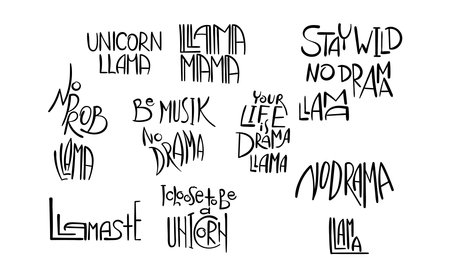 UNICORN
LLAMA
LLAMA
MAMA
STAY WILD
NO DRAMA
LLAMA
NO
PROB
LLAMA
Be MUSIK
NO
DRAMA
YOUR
LIFE
iS
DRAMA
LLAMA
LLAMASTE
I choose to Be
a
UNICORN
NO DRAMA
LLAMA